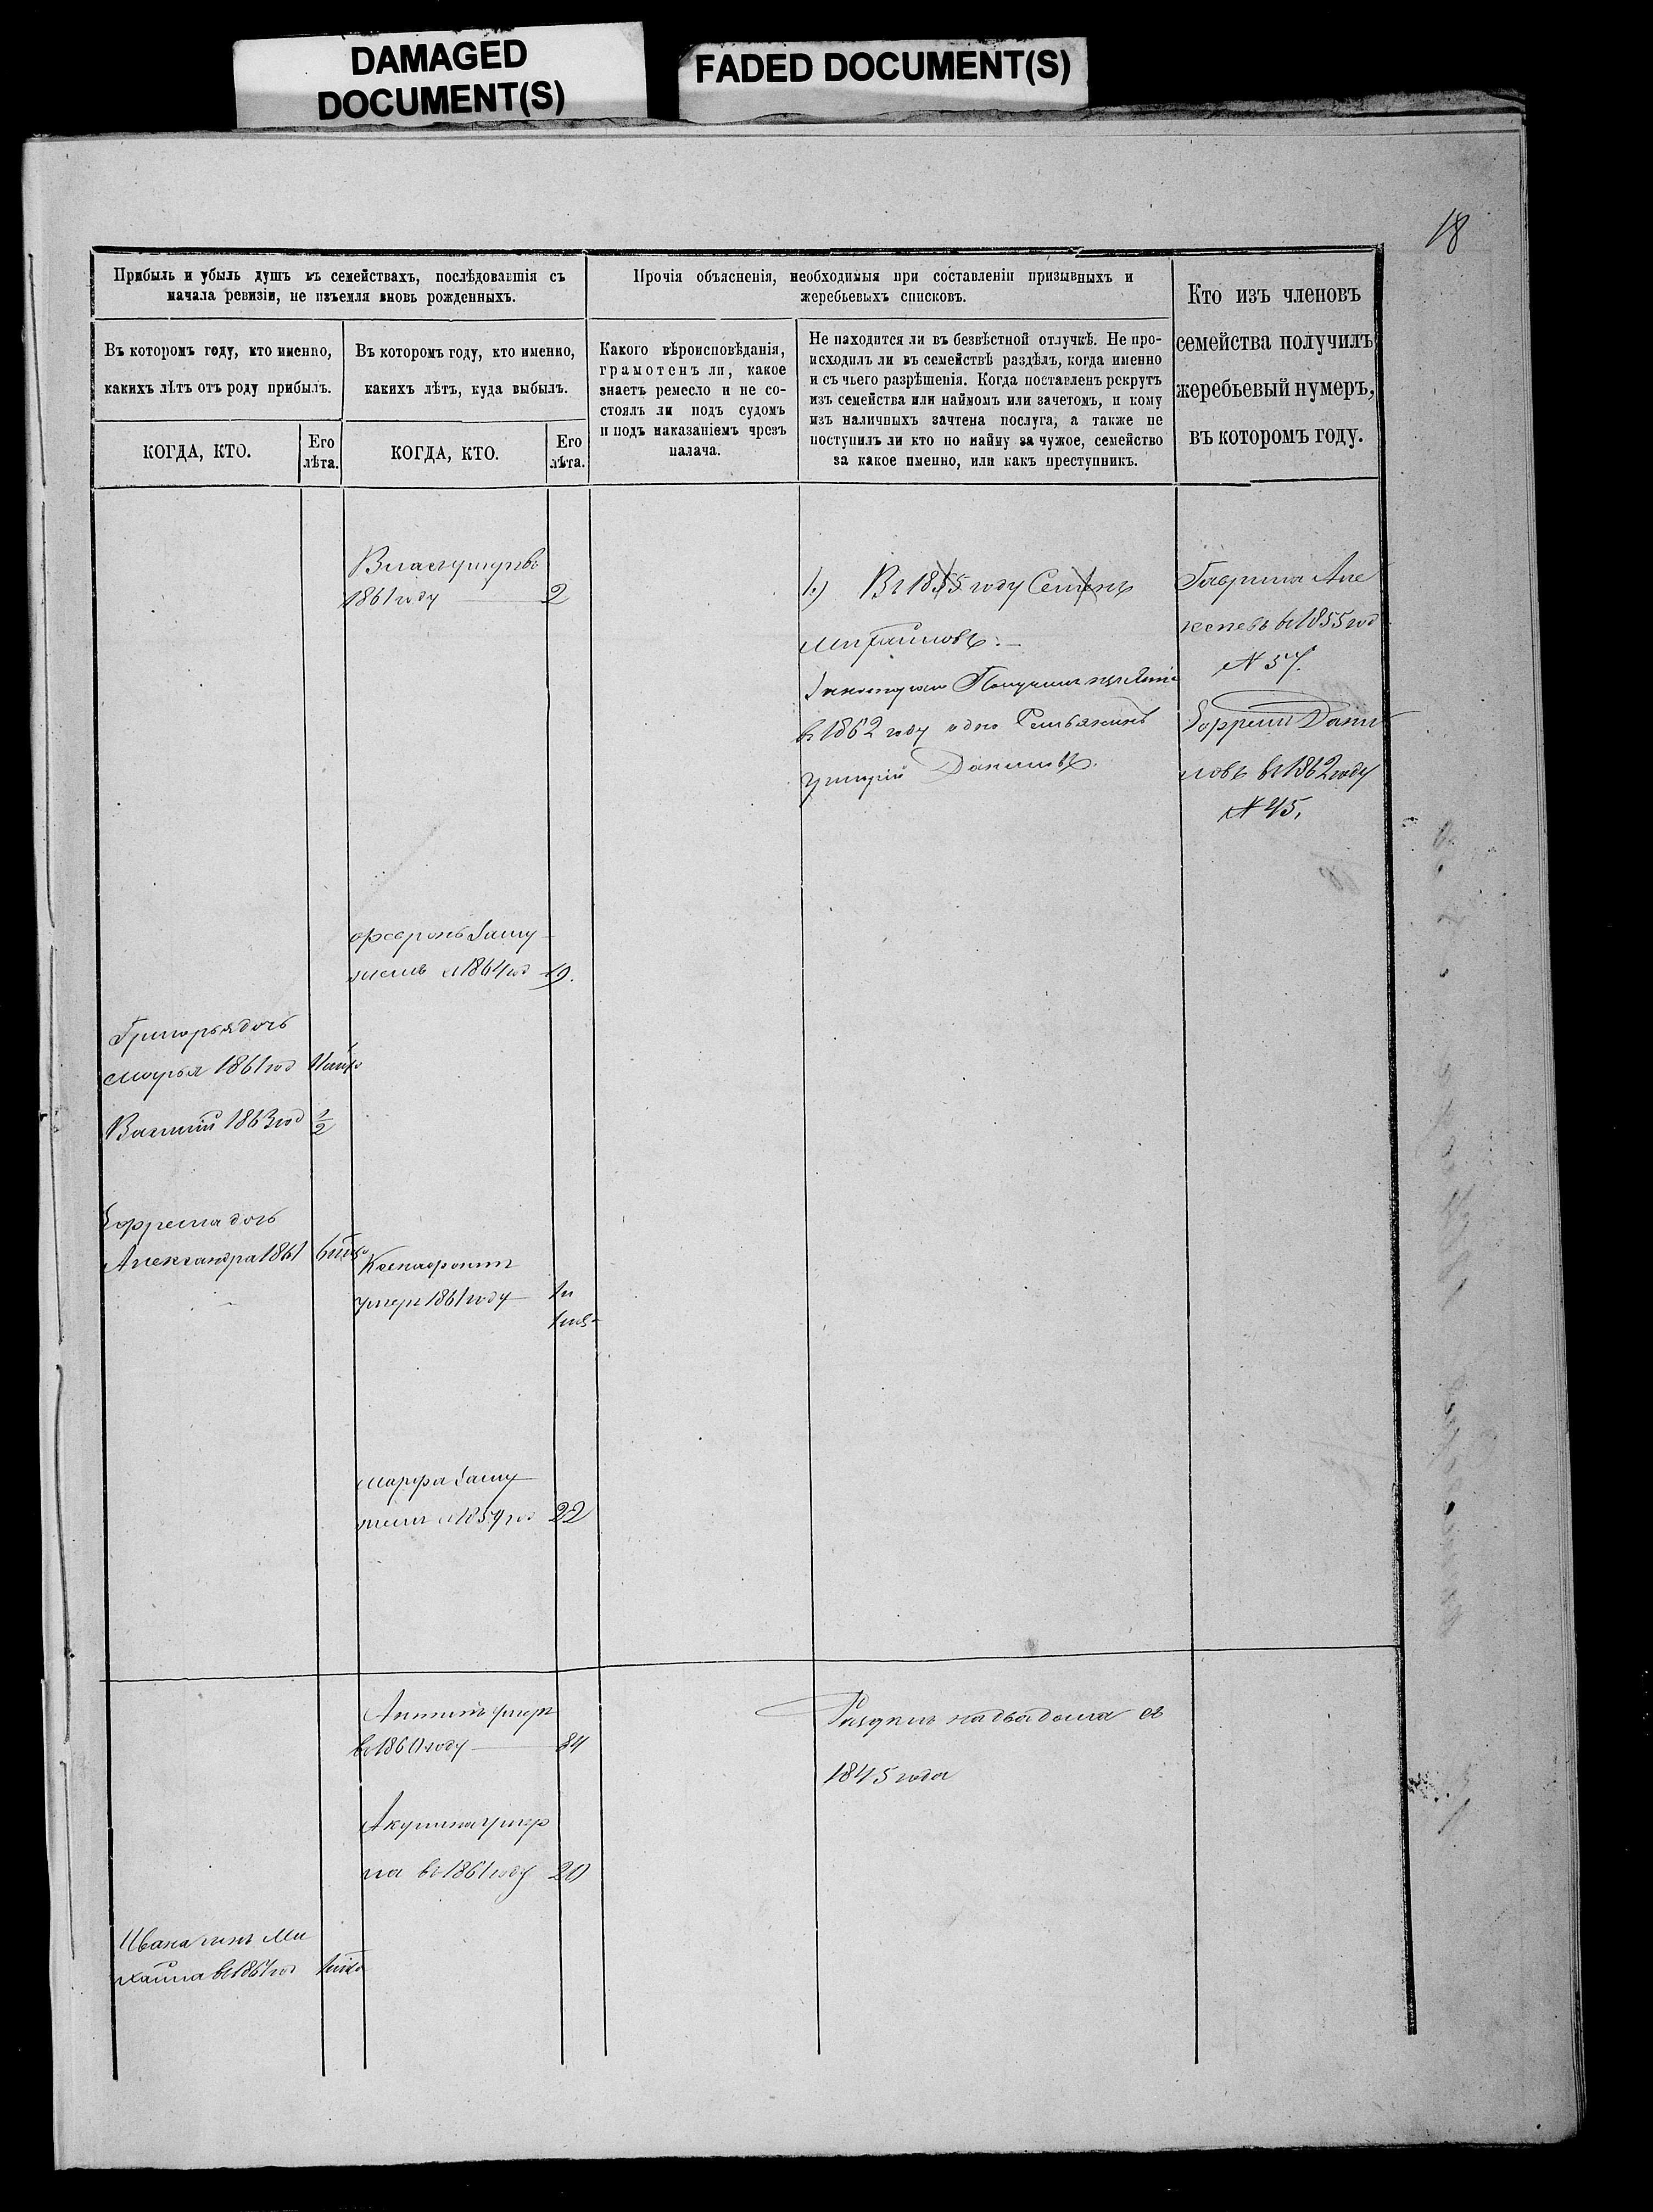 DAMAGED
DOCUMENT(S)
FADED DOCUMENT(S)
18
Прибыль и убыль душъ въ семействахъ, послѣдовавшія съ
начала ревизіи, не изъемля вновь рожденныхъ.
Прочія объясненія, необходимыя при составленіи призывныхъ и
жеребьевыхъ списковъ.
Кто изъ членовъ
семейства получилъ
жеребьевый нумеръ,
въ которомъ году.
Въ которомъ году, кто именно,
какихъ лѣтъ отъ роду прибылъ.
Въ которомъ году, кто именно,
какихъ лѣтъ, куда выбылъ.
Какого вѣроисповѣданія,
грамотенъ ли, какое
знаетъ ремесло и не со-
стоялъ ли подъ судомъ
и подъ наказаніемъ чрезъ
палача.
Не находится ли въ безвѣстной отлучкѣ. Не про-
исходилъ ли въ семействѣ раздѣлъ, когда именно
и съ чьего разрѣшенія. Когда поставленъ рекрутъ
изъ семейства или наймомъ или зачетомъ, и кому
изъ наличныхъ зачтена послуга, а также не
поступилъ ли кто по найму за чужое, семейство
за какое именно, или какъ преступникъ.
КОГДА, КТО.
Его
лѣта.
КОГДА, КТО.
Его
лѣта.
Власъ умеръ въ
1861 году 2
1.) Въ 1855 году Семенъ
Михайловъ.
въ 1862 году одно
Григорій Даниловъ.
Гаврила Але
ксеевъ в 1855 год
№ 57.
Ефремъ Дани
ловъ в 1862 году
№ 45.
Феврон Заму
жемъ с 1864 год 19.
Григорья дочь
Марья 1861 год
Василій 1863 год 1/2
Ефрема дочь
Александра 1861
Ксенофонтъ
умеръ 1861 году
Марфа Заму
жемъ с 1859 год 22
Антипъ умеръ
в 1860 году 84
Акулина умер
ла в 1861 году 20
Раздѣлъ на два дома съ
1845 года
Ивана сынъ Ми
хайла